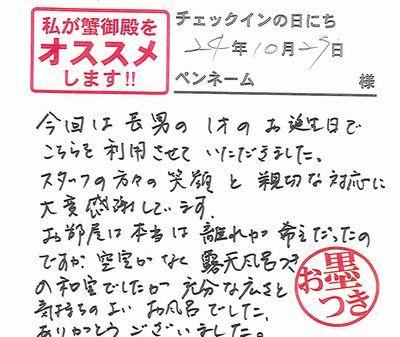 私が蟹御殿を
オススメ
します!!
チェックインの日にち
24年10月29日
ペンネーム 様
今回は長男の1才のお誕生日で
こちらを利用させていただきました。
スタッフの方々の笑顔と親切な対応に
大変感謝しています。
お部屋は本当は離れが希望だったの
ですが、空室がなく露天風呂つき
の和室でしたが充分な広さと
気持ちのよいお風呂でした。
ありがとうございました。
お墨つき